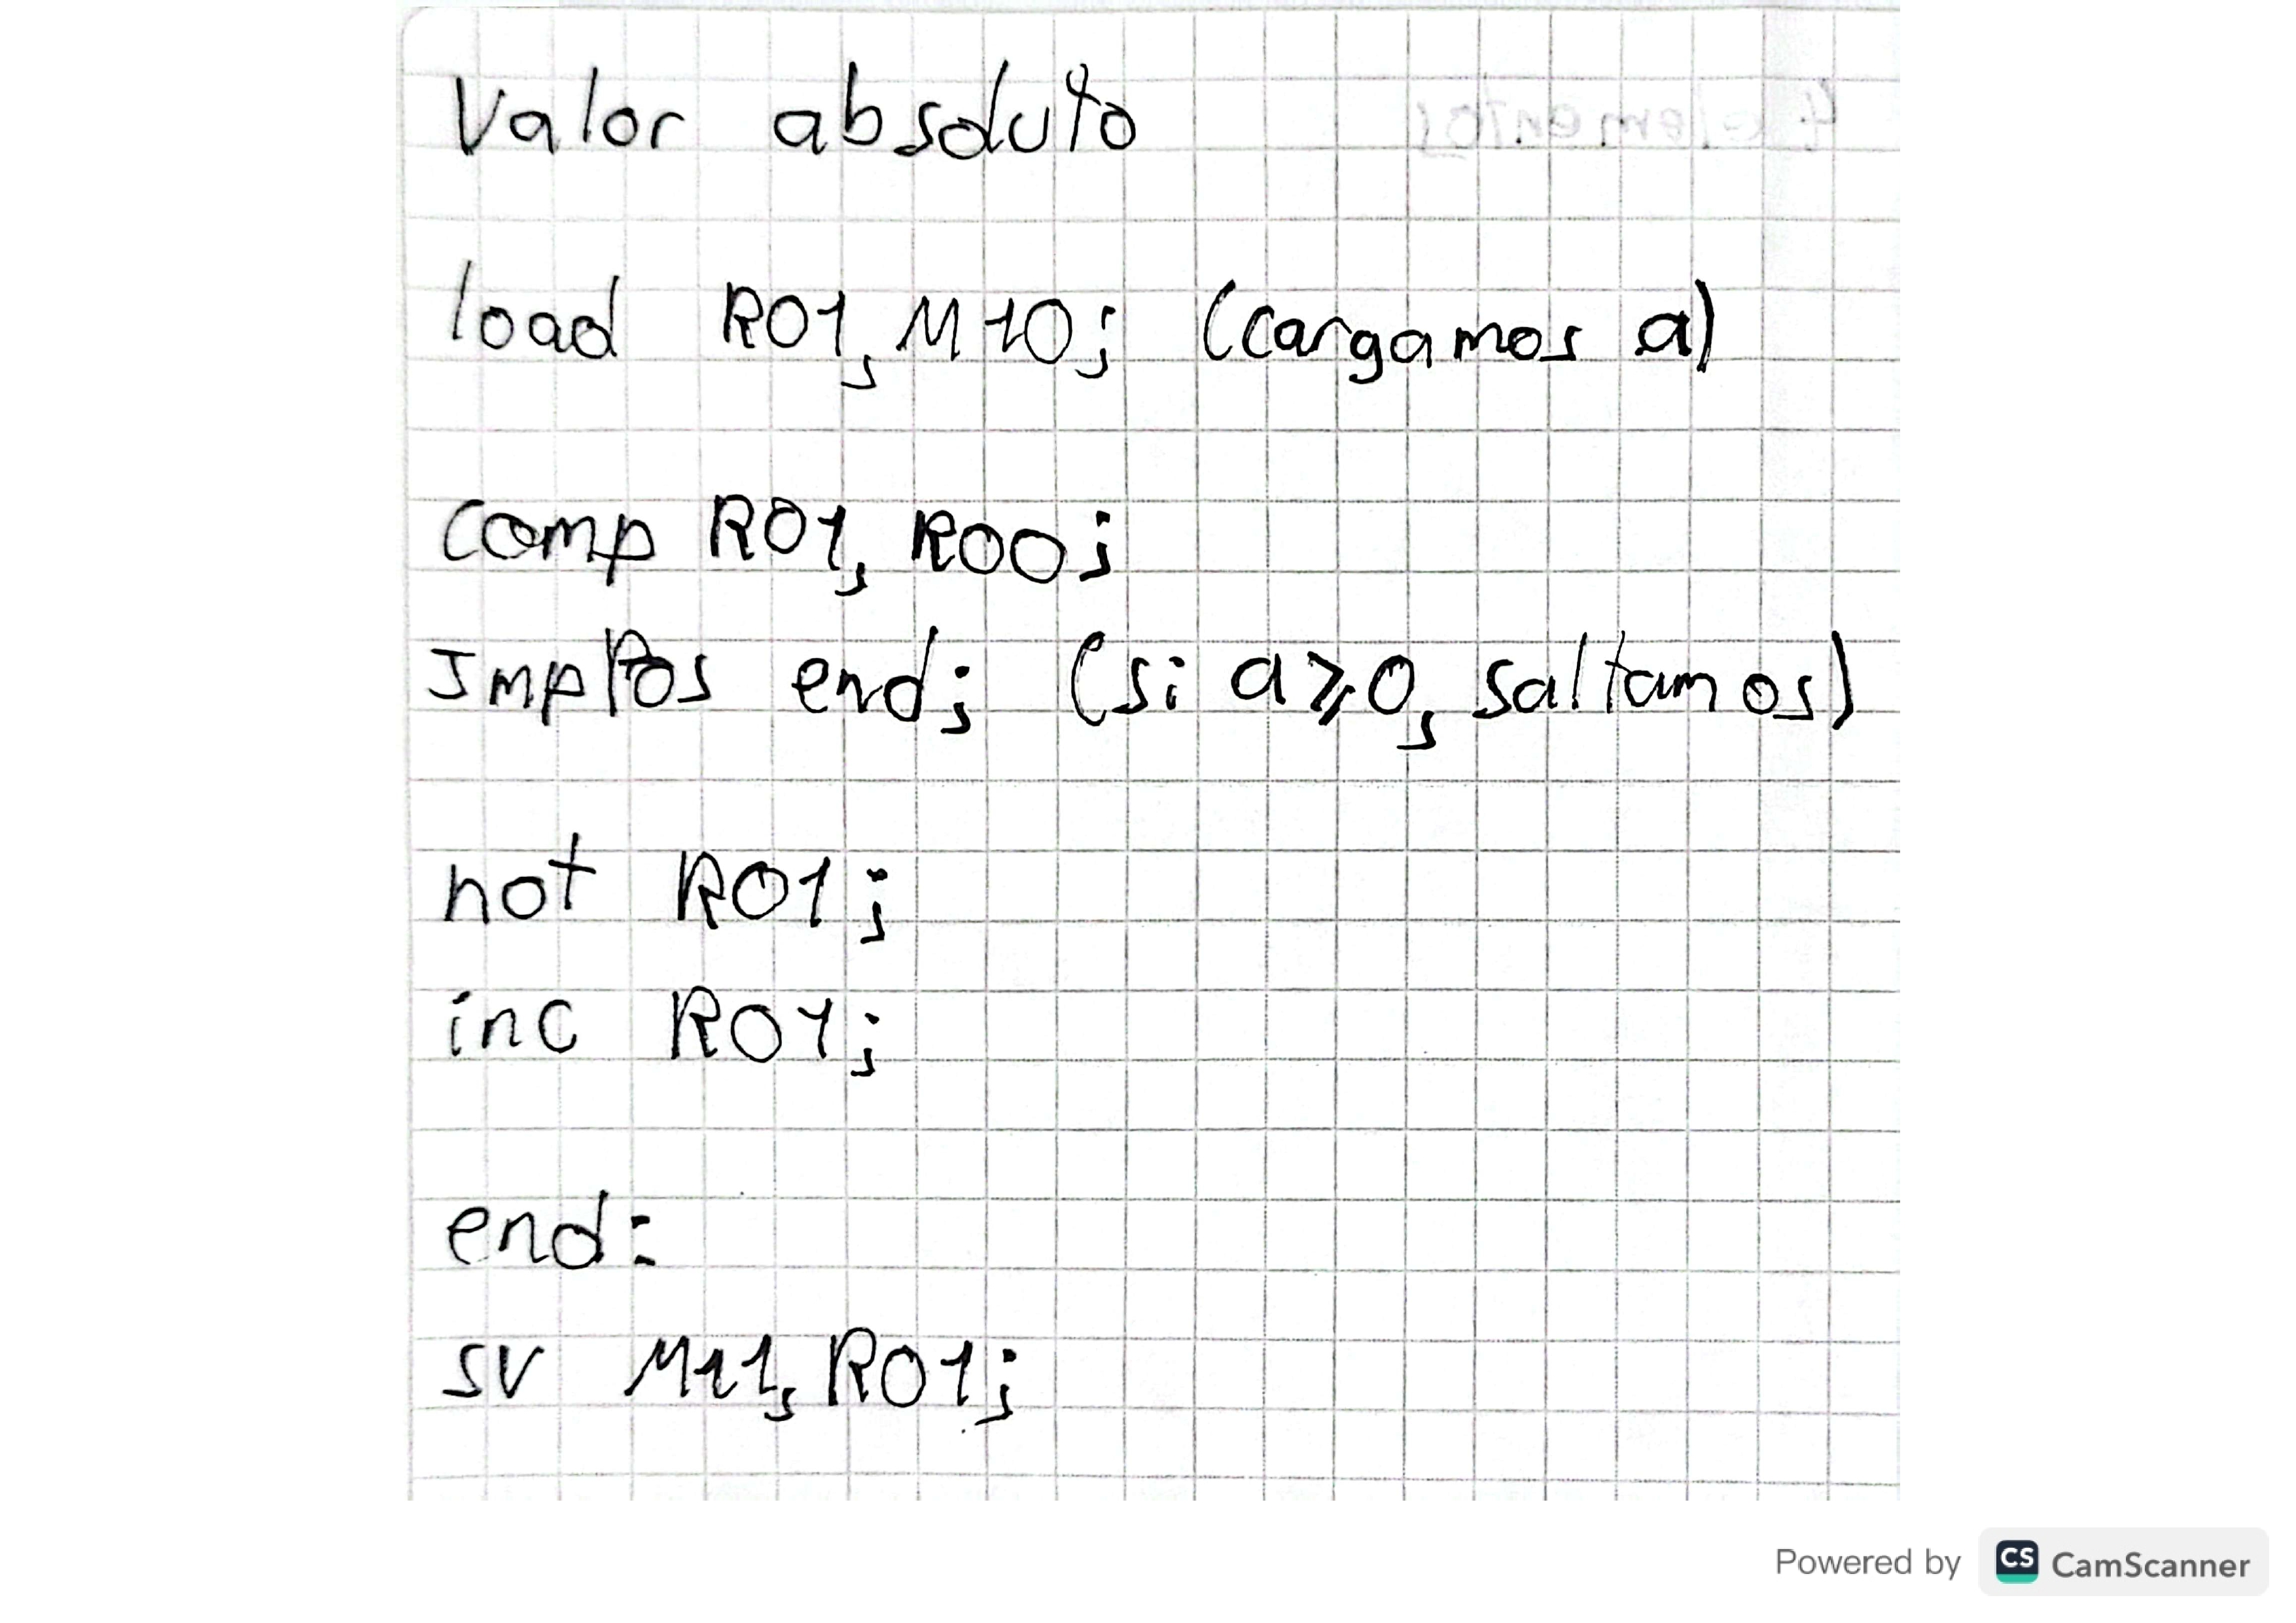 Valor absoluto
4 elementos
load R01, M10; (cargamos a)
comp R01, R00;
JmpPos end; (si a⩾0, saltamos)
not R01;
inc R01;
end:
sv M11, R01;
Powered by CS CamScanner